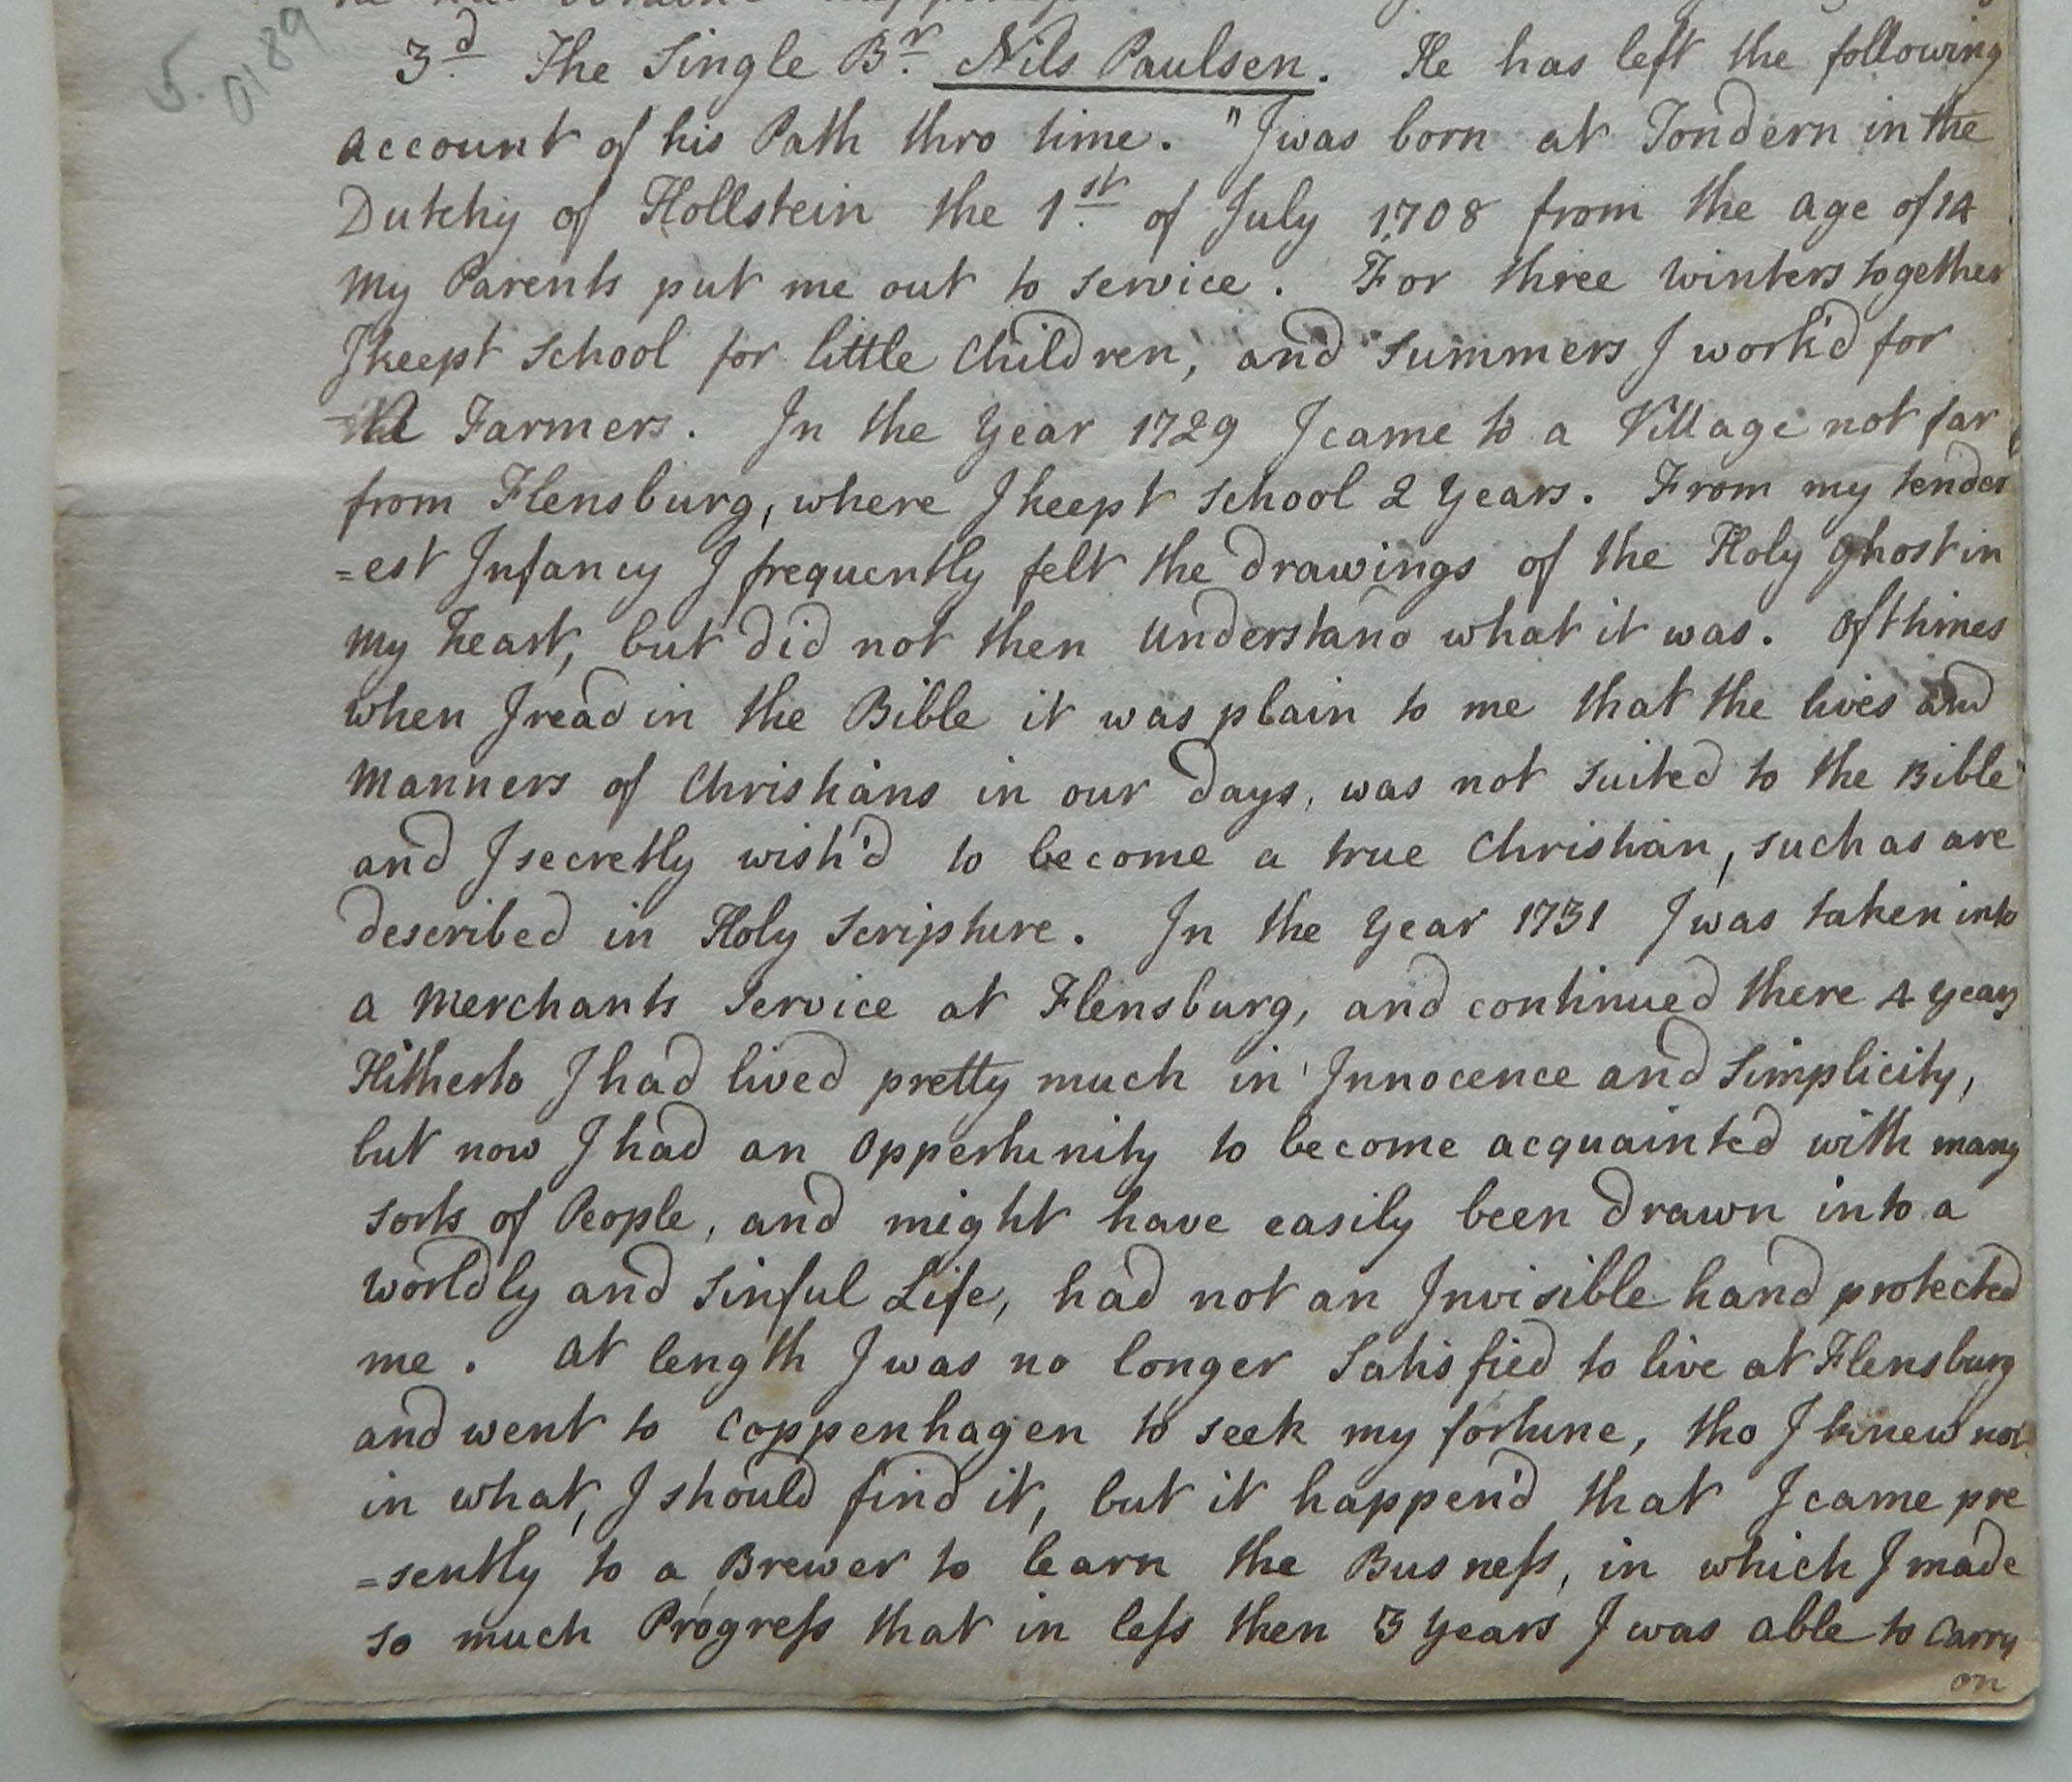 5.
0189
3d. The Single Br. Nils Paulsen. He has left the following
account of his Path thro time. "I was born at Tondern in the
Dutchy of Hollstein the 1st. of July 1708 from the age of 14
my Parents put me out to service. For three winters together
I keept School for little Children, and Summers I work'd for
the Farmers. In the Year 1729 I came to a Village not far
from Flensburg, where I keept School 2 Years. From my tender
=est Infancy I frequently felt the drawings of the Holy Ghost in
my heart, but did not then understand what it was. Ofthimes
when I read in the Bible it was plain to me that the lives and
manners of Christians in our days, was not suited to the Bible
and I secretly wish'd to become a true Christian, such as are
described in Holy Scripture. In the Year 1731 I was taken into
a Merchants Service at Flensburg, and continued there 4 years
Hitherto I had lived pretty much in Innocence and Simplicity,
but now I had an oppertunity to become acquainted with many
sorts of People, and might have easily been drawn into a
worldly and sinful Life, had not an Invisible hand protected
me. At length I was no longer Satisfied to live at Flensburg
and went to Coppenhagen to seek my fortune, tho I knew not
in what, I should find it, but it happen'd that I came pre
=sently to a Brewer to learn the Busneſs, in which I made
so much Progreſs that in leſs then 3 years I was able to carry
on